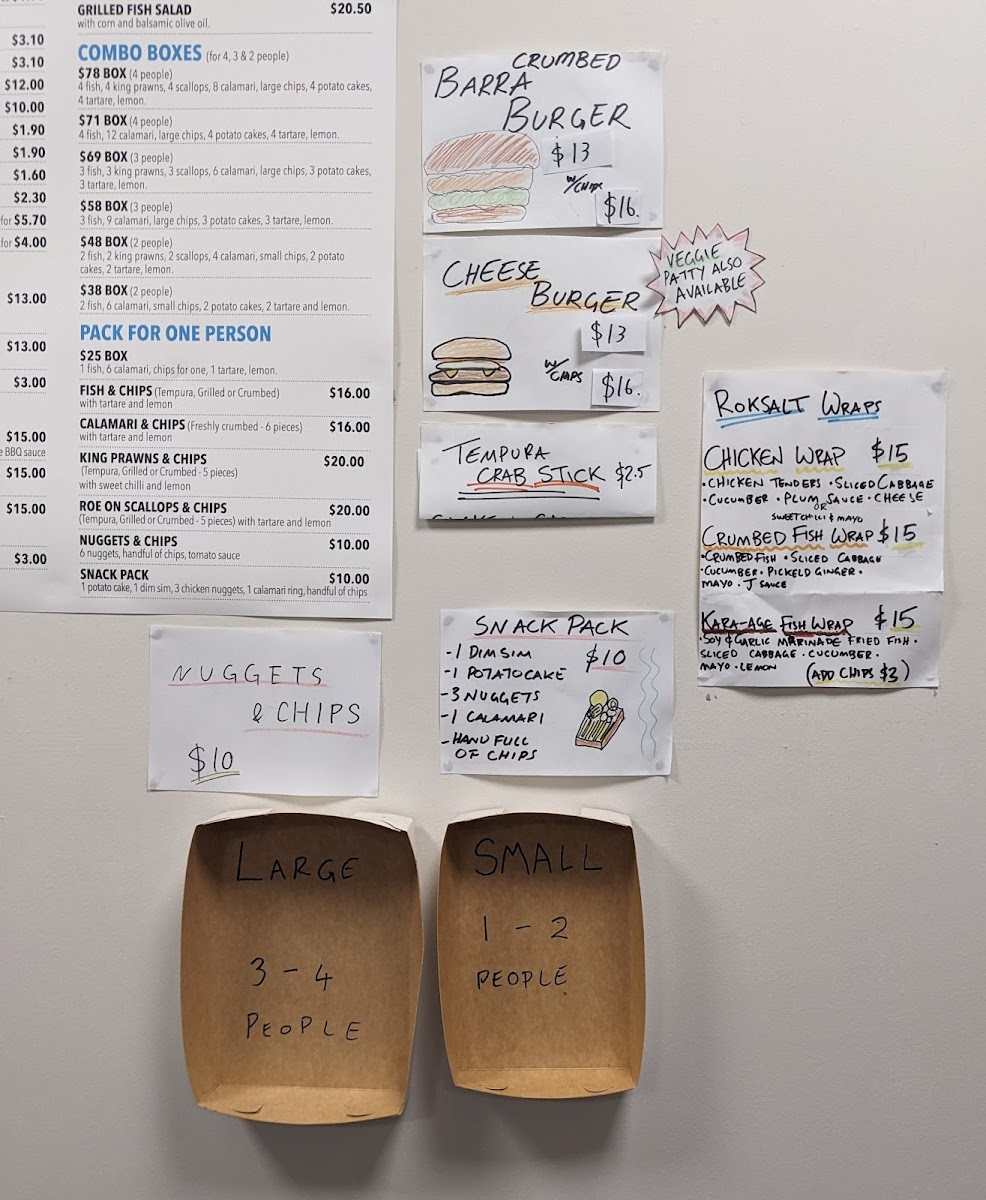 GRILLED FISH SALAD $20.50
with corn and balsamic olive oil.
$3.10
$3.10
$12.00
$10.00
$1.90
$1.90
$1.60
$2.30
for $5.70
for $4.00
$13.00
$13.00
$3.00
$15.00
BBQ sauce
$15.00
$15.00
$3.00
COMBO BOXES (for 4, 3 & 2 people)
$78 BOX (4 people)
4 fish, 4 king prawns, 4 scallops, 8 calamari, large chips, 4 potato cakes,
4 tartare, lemon.
$71 BOX (4 people)
4 fish, 12 calamari, large chips, 4 potato cakes, 4 tartare, lemon.
$69 BOX (3 people)
3 fish, 3 king prawns, 3 scallops, 6 calamari, large chips, 3 potato cakes,
3 tartare, lemon.
$58 BOX (3 people)
3 fish, 9 calamari, large chips, 3 potato cakes, 3 tartare, lemon.
$48 BOX (2 people)
2 fish, 2 king prawns, 2 scallops, 4 calamari, small chips, 2 potato
cakes, 2 tartare, lemon.
$38 BOX (2 people)
2 fish, 6 calamari, small chips, 2 potato cakes, 2 tartare and lemon.
PACK FOR ONE PERSON
$25 BOX
1 fish, 6 calamari, chips for one, 1 tartare, lemon.
FISH & CHIPS (Tempura, Grilled or Crumbed) $16.00
with tartare and lemon
CALAMARI & CHIPS (Freshly crumbed - 6 pieces) $16.00
with tartare and lemon
KING PRAWNS & CHIPS $20.00
(Tempura, Grilled or Crumbed - 5 pieces)
with sweet chilli and lemon
ROE ON SCALLOPS & CHIPS $20.00
(Tempura, Grilled or Crumbed - 5 pieces) with tartare and lemon
NUGGETS & CHIPS $10.00
6 nuggets, handful of chips, tomato sauce
SNACK PACK $10.00
1 potato cake, 1 dim sim, 3 chicken nuggets, 1 calamari ring, handful of chips
CRUMBED
BARRA
BURGER
$13
W/CHIPS
$16.
CHEESE
BURGER
$13
W/CHIPS
$16.
VEGGIE
PATTY ALSO
AVAILABLE
TEMPURA
CRAB STICK $2.5
ROKSALT WRAPS
CHICKEN WRAP $15
• CHICKEN TENDERS • SLICED CABBAGE
• CUCUMBER • PLUM SAUCE • CHEESE
OR
SWEET CHILI & MAYO
CRUMBED FISH WRAP $15
• CRUMBED FISH • SLICED CABBAGE
• CUCUMBER • PICKELD GINGER •
MAYO • J SAUCE
KARA-AGE FISH WRAP $15
• SOY & GARLIC MARINADE FRIED FISH •
SLICED CABBAGE • CUCUMBER •
MAYO • LEMON (ADD CHIPS $3)
NUGGETS
& CHIPS
$10
SNACK PACK
- 1 DIMSIM $10
- 1 POTATOCAKE
- 3 NUGGETS
- 1 CALAMARI
- HAND FULL
OF CHIPS
LARGE
3 - 4
PEOPLE
SMALL
1 - 2
PEOPLE